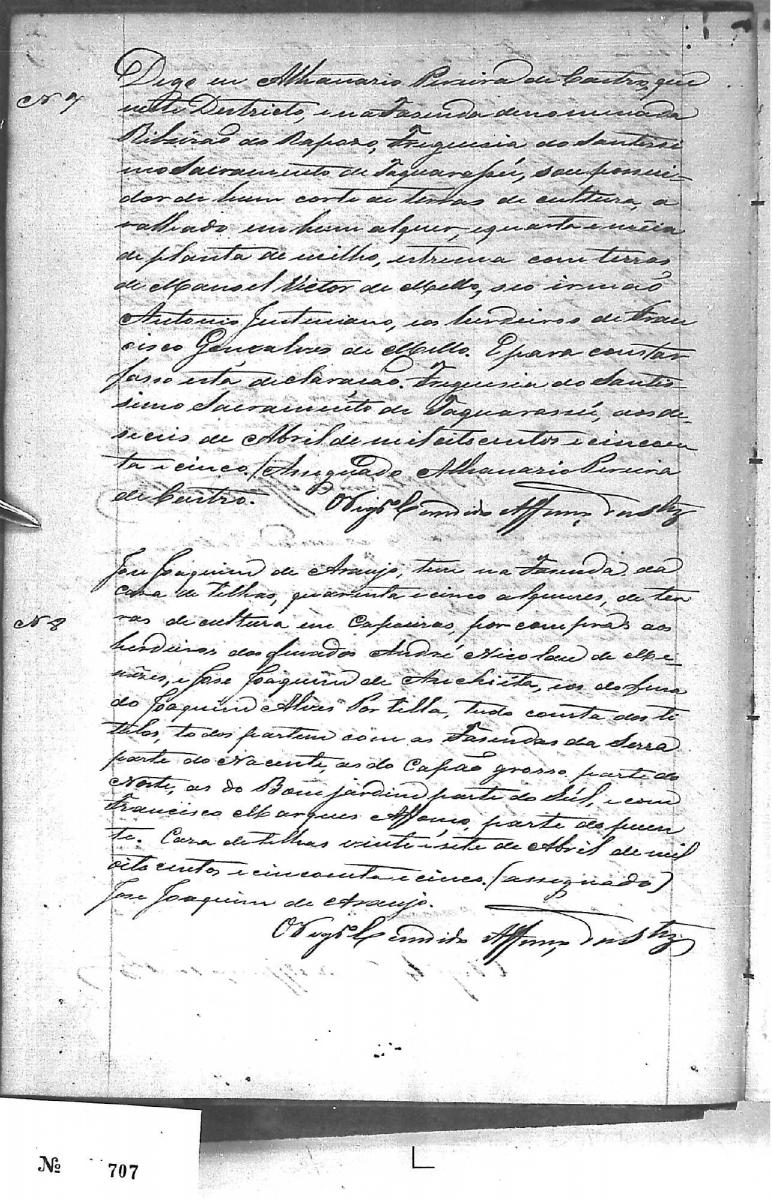 Digo eu Athanazio Pereira de Castro, que
N 7
neste Districto, e na Fazenda denominada
Ribeirão do Rapozo, Freguesia do Santissi
mo Sacramento de Taquarassú, sou possui-
dor de hum corte de terras de cultura, a
valliado em hum alquer, e quarta e meia
de planta de milho, estrema com terras
de Manoel Victor de Mello, seo irmaõ
Antonio Justiniano, e os herdeiros de Fran
cisco Gonçalves de Mello. E para constar
fasso esta declaracaõ. Freguesia do Santis-
simo Sacramento de Taquarassú, aos de-
seseis de Abril de mil oitocentos e cincoen
ta e cinco. (Assignado Athanazio Pereira
de Castro.
O Vigrº Candido Affonç
Jose Joaquim de Araujo, tem na Fazenda da
Caza de telhas, quarenta e cinco alqueres, de ter
N 8
ras de cultura em Capoeiras, por compras aos
herdeiros dos finados André Nicolau de Me-
nezes, e Jose Joaquim de Anchiêta, e os do fina
do Joaquim Alves Portella, tudo consta dos ti
tulos, todos partem com as Fazendas da Serra
parte do Nacente, as do Capão grosso, parte do
Norte, as do Bom jardim parte do Sul, e com
Francisco Marques Affonso, parte do poen
te. Caza de telhas vinte e sete de Abril de mil
oito centos e cincoenta e cinco. (assegnado)
Jose Joaquim de Araujo.
O Vigrº Candido Affonç
Nº 707